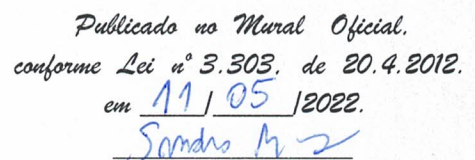 Publicado no Mural Oficial.
conforme Lei nº 3.303, de 20.4.2012.
em 11/05/2022.